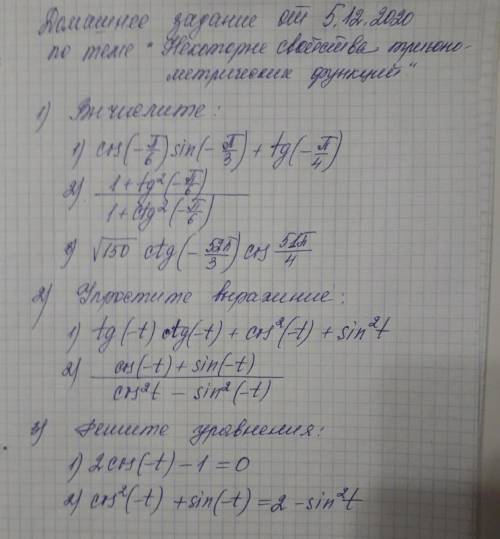 Домашнее задание от 5.12.2020
по теме "Некоторые свойства тригоно-
метрических функций"
1) Вычислите:
1) cos(-π/6) sin(-π/3) + tg(-π/4)
2) (1 + tg²(-π/6)) / (1 + ctg²(-π/6))
3) √150 ctg(-52π/3) cos 51π/4
2) Упростите выражение:
1) tg(-t) ctg(-t) + cos²(-t) + sin²t
2) (cos(-t) + sin(-t)) / (cos²t - sin²(-t))
3) Решите уравнения:
1) 2cos(-t) - 1 = 0
2) cos²(-t) + sin(-t) = 2 - sin²t